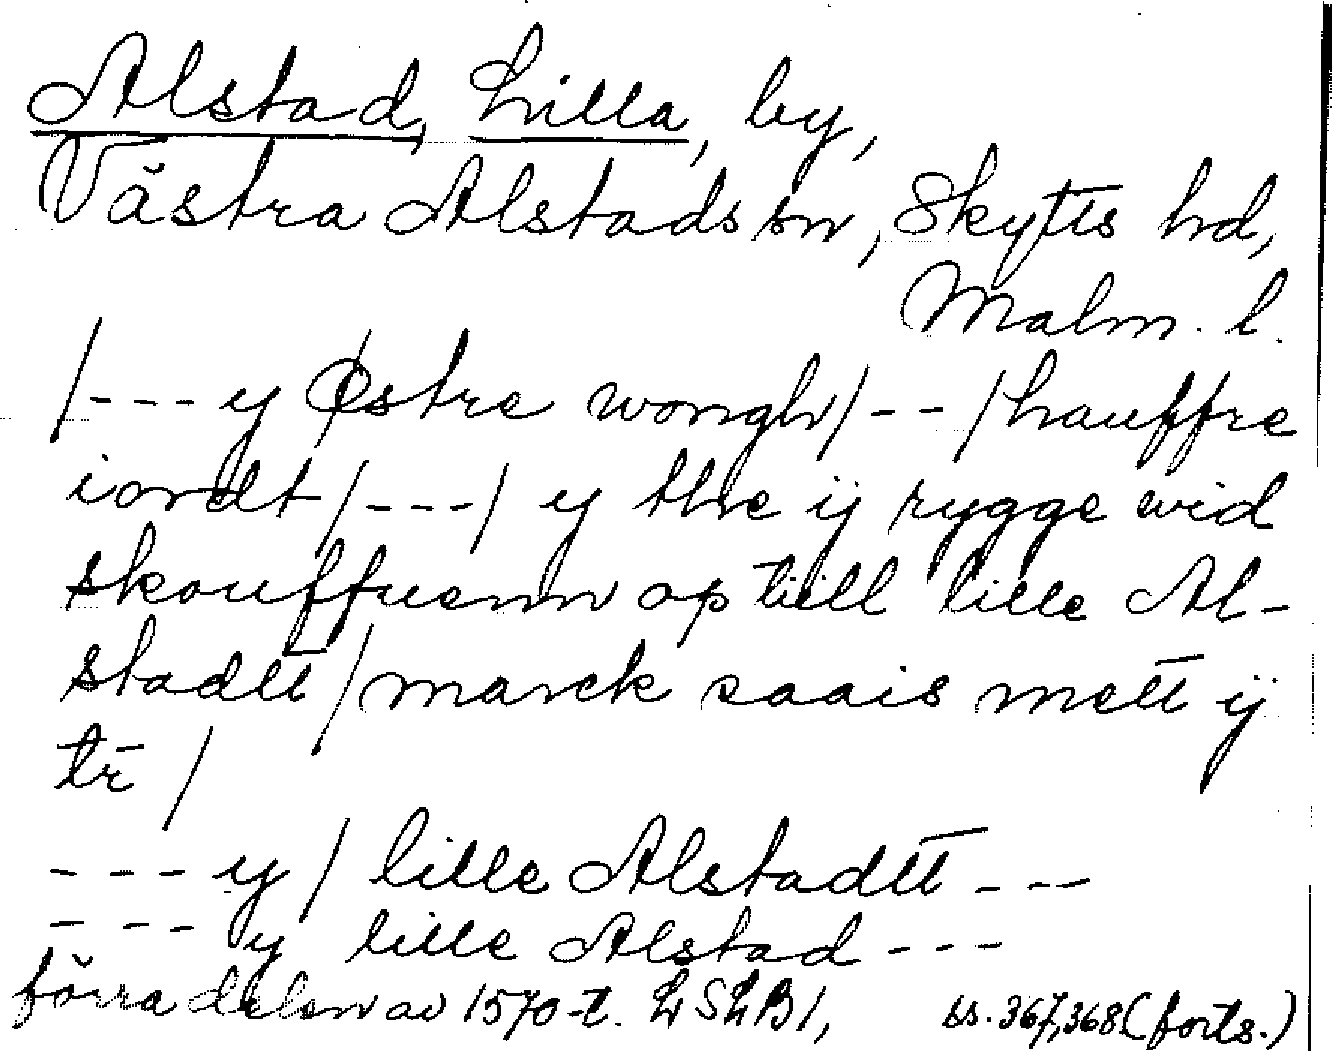 Alstad, Lilla, by,
Västra Alstads sn, Skytts hd,
Malm. l.
/--- y Østre wongh/--/hauffre
iordt/---/ y the ij rygge wid
skouffuenn op till lille Al-
stadtt/marck saais mett ij
tr /
--- y / lille Alstadtt ---
--- y lille Alstad ---
förra delen av 1570-t. LSLB1, ss. 367,368 (forts.)